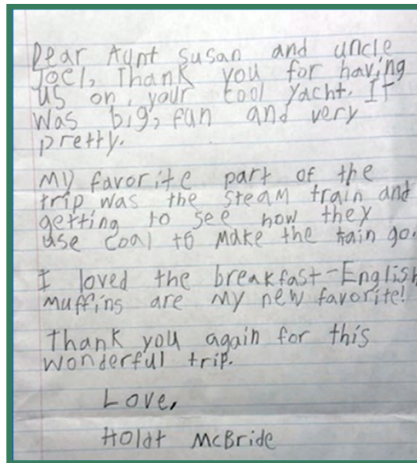 Dear Aunt Susan and uncle
Joel, Thank you for having
us on your cool yacht. It
was big, fun and very
pretty.
My favorite part of the
trip was the steam train and
getting to see how they
use coal to make the tain go.
I loved the breakfast-English
muffins are my new favorite!
Thank you again for this
wonderful trip.
Love,
Holdt McBride